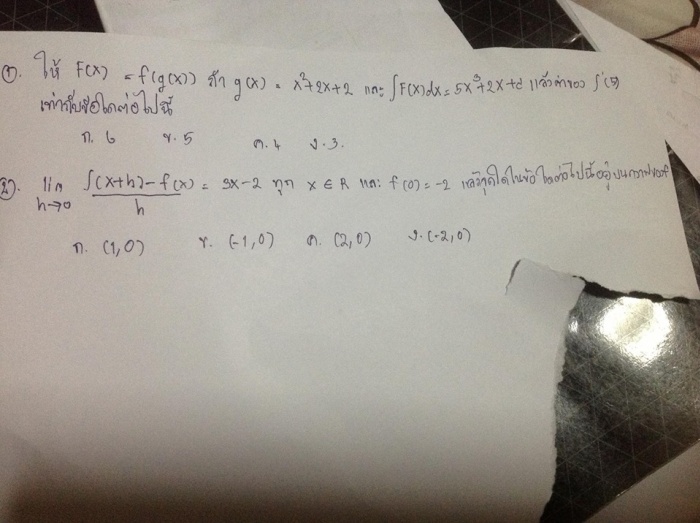 ①. ให้ F(x) = f(g(x)) ถ้า g(x) = x²+2x+2 และ ∫F(x)dx = 5x³+2x+d แล้วค่าของ f'(5)
เท่ากับข้อใดต่อไปนี้
ก. 6 ข. 5 ค. 4 ง. 3.
②. lim f(x+h)-f(x) = 3x-2 ทุก x ∈ R และ f(0) = -2 แล้วจุดใดในข้อใดต่อไปนี้อยู่บนกราฟของ f
h→0 h
ก. (1,0) ข. (-1,0) ค. (2,0) ง. (-2,0)